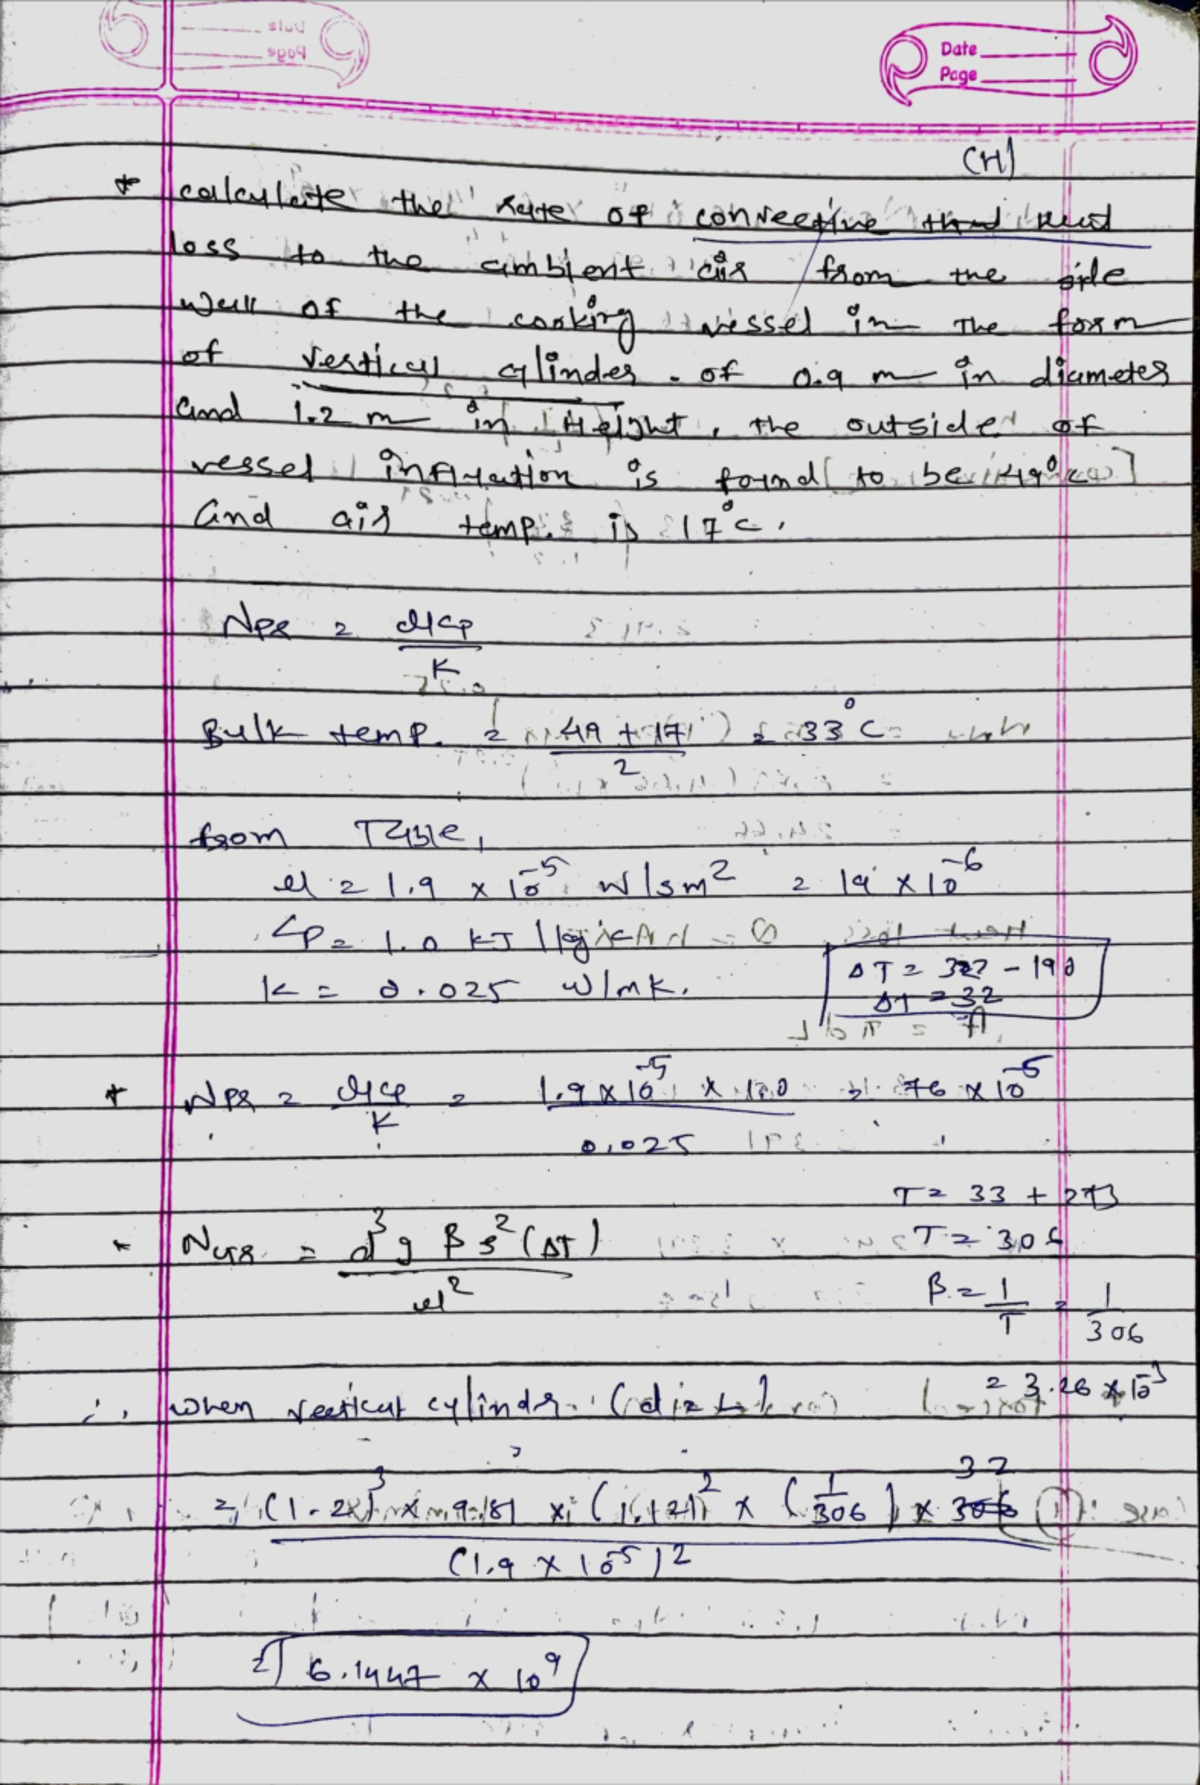 Date
Page
(H)
* calculate the rate of convective heat
loss to the ambient air from the side
wall of the cooking vessel in the form
of vertical cylinder. of 0.9 m in diameter
and 1.2 m in Height, the outside of
vessel is found to be 49°c
and air temp. is 17°c.
Npr = μcp / K
Bulk temp. = 49 + 17 / 2 = 33°C
from Table,
μ = 1.9 × 10^-5 W/sm² = 19 × 10^-6
Cp = 1.0 KJ/kgk
K = 0.025 W/mk.
ΔT = 32
* Npr = μcp / K = 1.9 × 10^-5 × 1.0 / 0.025 = 76 × 10^-5
T = 33 + 273
T = 306
NGr = d³ g β ρ² (ΔT) / μ²
β = 1/T = 1/306
= 3.26 × 10^-3
∴ when vertical cylinder. (d = L)
32
= (1.2)³ × 9.81 × (1.121)² × (1/306) ×
(1.9 × 10^-5)²
= 6.1447 × 10^9